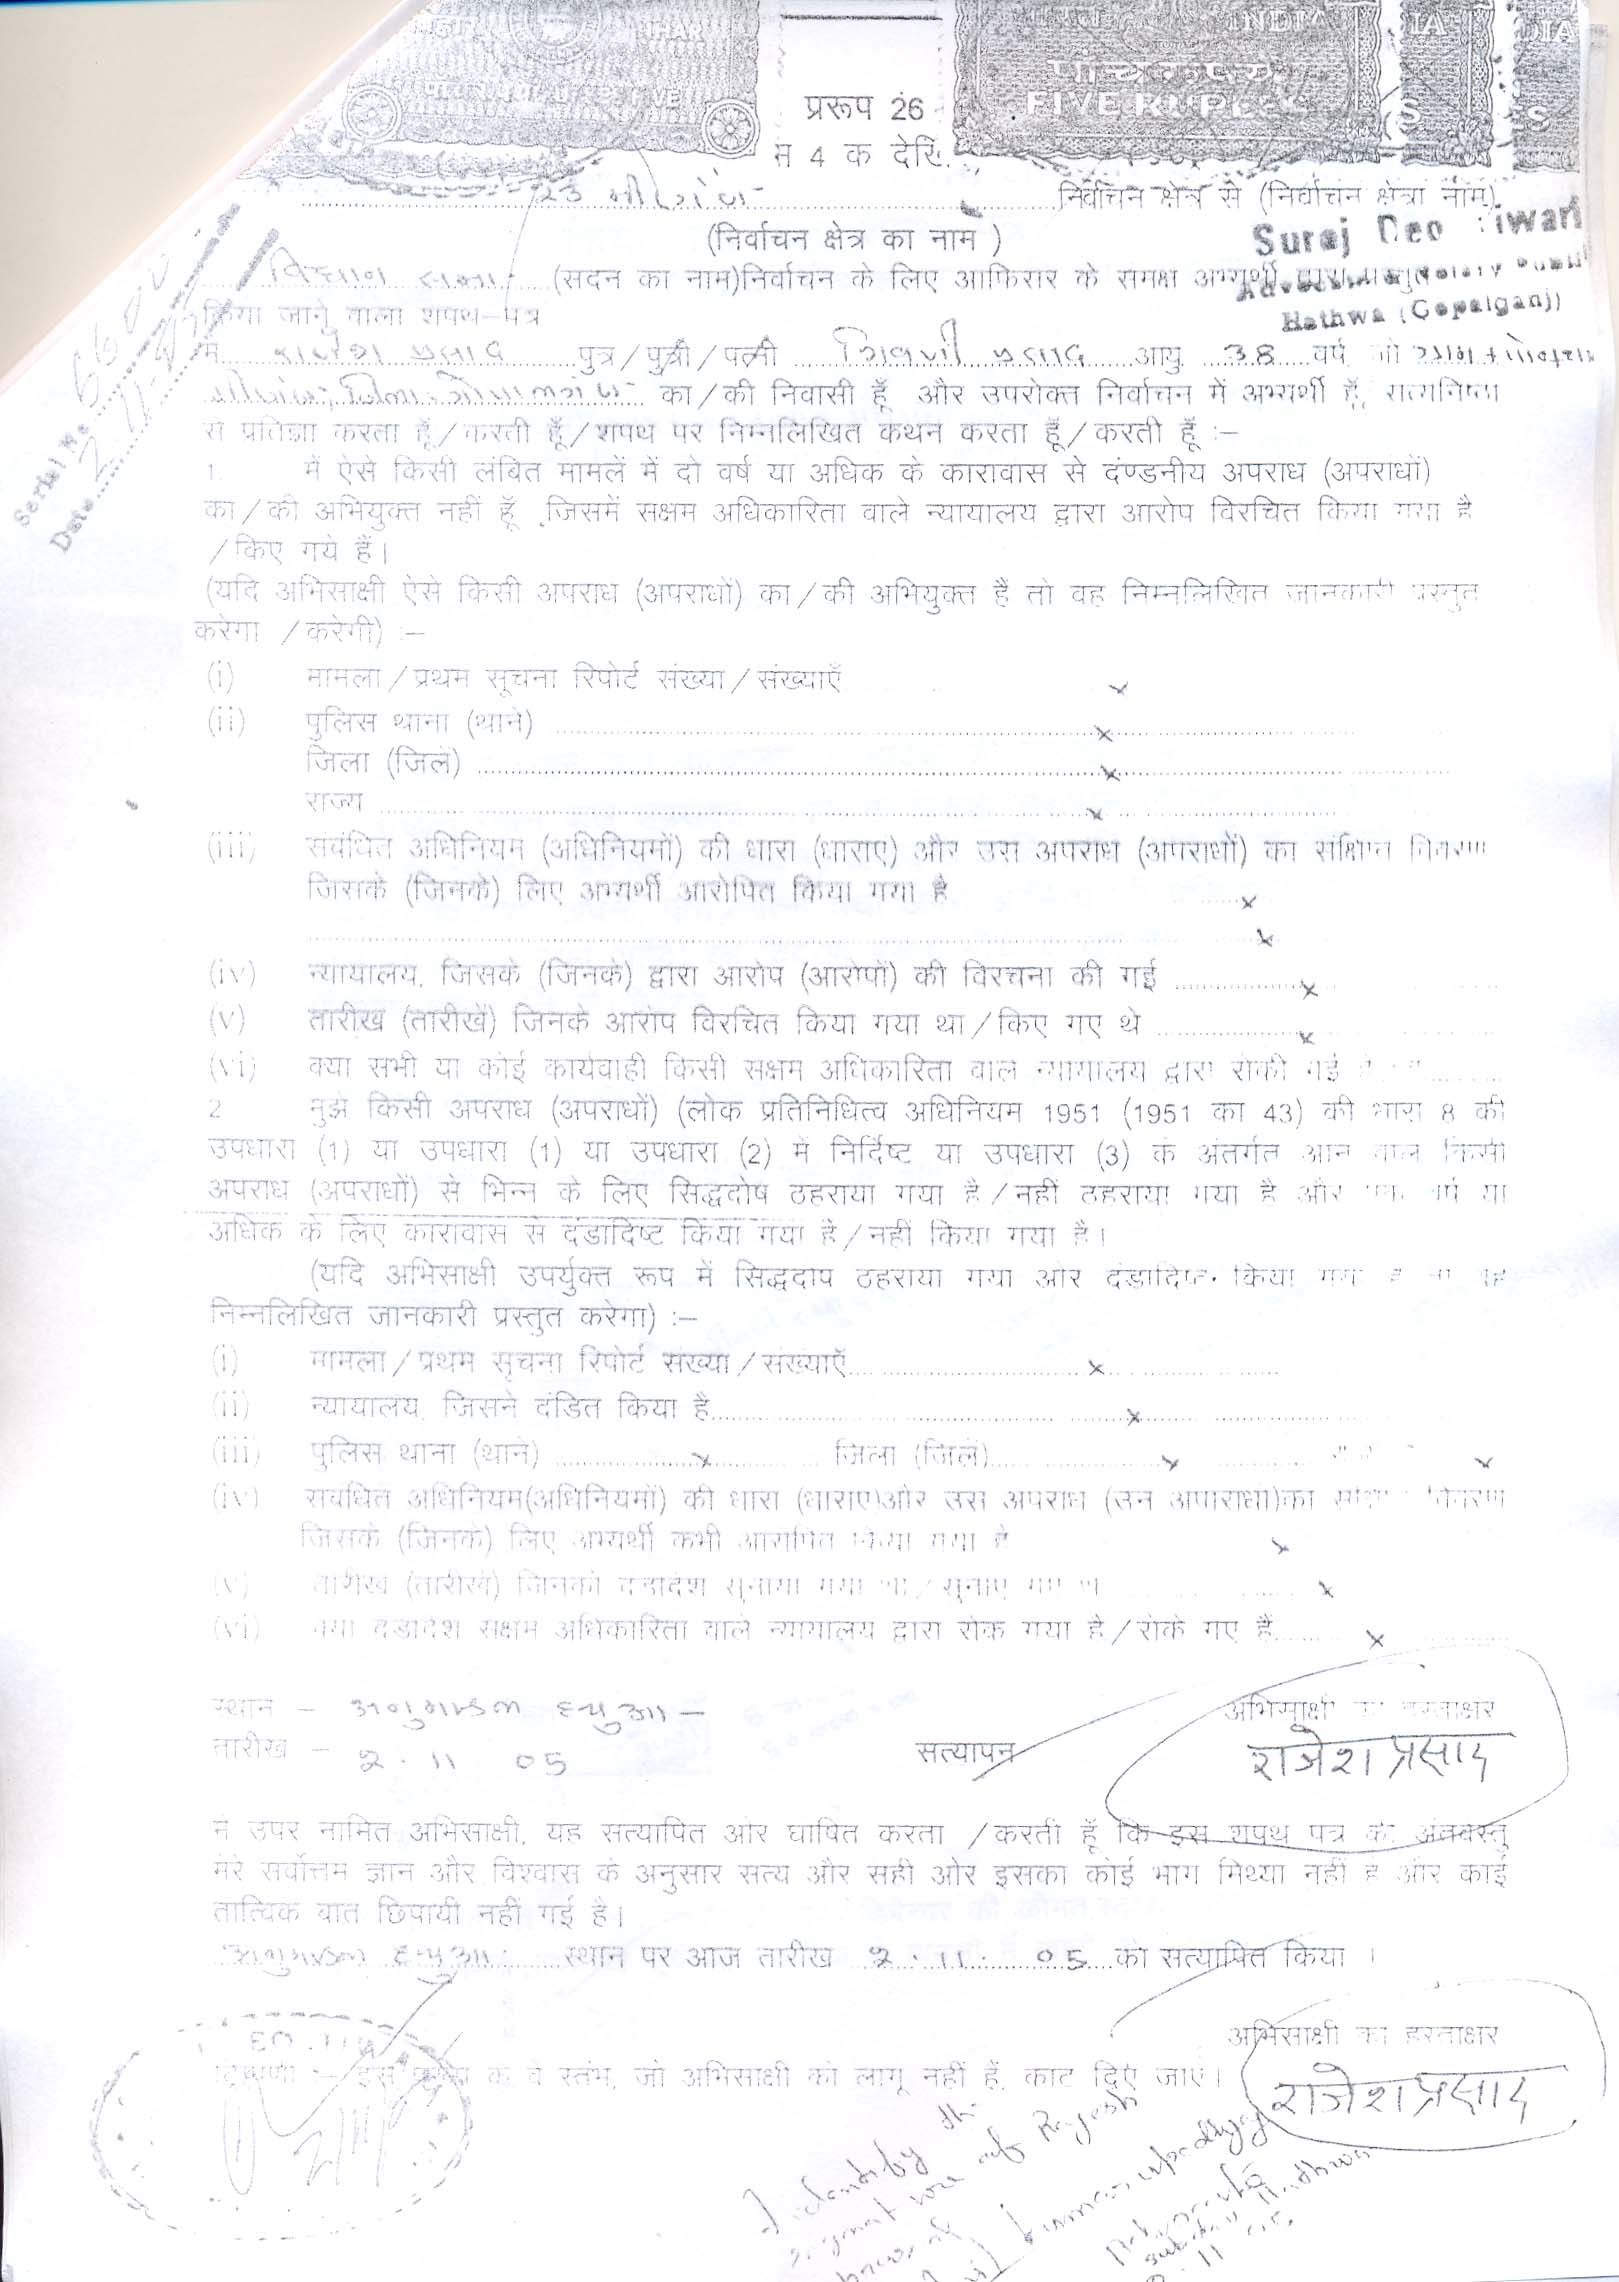 BIHAR
INDIA
पांच रुपये
FIVE RUPEES
प्ररूप 26
4 क
23 मीरगंज निर्वाचन क्षेत्र से (निर्वाचन क्षेत्रा नाम)
(निर्वाचन क्षेत्र का नाम )
Suraj Deo Tiwari
विधान सभा (सदन का नाम)निर्वाचन के लिए आफिरार के समक्ष अभ्यर्थी द्वारा
Hathwa (Gopalganj)
किया जाने वाला शपथ–पत्र
मैं राजेश प्रसाद पुत्र/पुत्री/पत्नी शिवजी प्रसाद आयु 38 वर्ष जो
मीरगंज, जिला गोपालगंज का/की निवासी हूँ और उपरोक्त निर्वाचन में अभ्यर्थी हूँ, सत्यनिष्ठा
से प्रतिज्ञा करता हूँ/करती हूँ/शपथ पर निम्नलिखित कथन करता हूँ/करती हूँ :–
Serial No.
Date
1. में ऐसे किसी लंबित मामलें में दो वर्ष या अधिक के कारावास से दंण्डनीय अपराध (अपराधों)
का/की अभियुक्त नहीं हूँ ,जिसमें सक्षम अधिकारिता वाले न्यायालय द्वारा आरोप विरचित किया गया है
/किए गये हैं।
(यदि अभिसाक्षी ऐसे किसी अपराध (अपराधों) का/की अभियुक्त हैं तो वह निम्नलिखित जानकारी प्रस्तुत
करेगा /करेगी) :–
(i) मामला/प्रथम सूचना रिपोर्ट संख्या/संख्याएँ x
(ii) पुलिस थाना (थाने) x
जिला (जिले) x
राज्य x
(iii) सबंधित अधिनियम (अधिनियमों) की धारा (धाराए) और उस अपराध (अपराधों) का संक्षिप्त विवरण
जिसके (जिनके) लिए अभ्यर्थी आरोपित किया गया है x
x
(iv) न्यायालय, जिसके (जिनके) द्वारा आरोप (आरोपों) की विरचना की गई x
(v) तारीख (तारीखें) जिनके आरोप विरचित किया गया था/किए गए थे x
(vi) क्या सभी या कोई कार्यवाही किसी सक्षम अधिकारिता वाले न्यायालय द्वारा रोकी गई
2 मुझे किसी अपराध (अपराधों) (लोक प्रतिनिधित्व अधिनियम 1951 (1951 का 43) की धारा 8 की
उपधारा (1) या उपधारा (1) या उपधारा (2) में निर्दिष्ट या उपधारा (3) के अंतर्गत आने वाले किसी
अपराध (अपराधों) से भिन्न के लिए सिद्धदोष ठहराया गया है/नहीं ठहराया गया है और एक वर्ष या
अधिक के लिए कारावास से दंडादिष्ट किया गया है/नहीं किया गया है।
(यदि अभिसाक्षी उपर्युक्त रूप में सिद्धदोष ठहराया गया और दंडादिष्ट किया गया है
निम्नलिखित जानकारी प्रस्तुत करेगा) :–
(i) मामला/प्रथम सूचना रिपोर्ट संख्या/संख्याएँ x
(ii) न्यायालय जिसने दंडित किया है x
(iii) पुलिस थाना (थाने) x जिला (जिले) x x
(iv) सबंधित अधिनियम(अधिनियमों) की धारा (धाराए)और उस अपराध (उन अपाराधों)का विवरण
जिसके (जिनके) लिए अभ्यर्थी कभी आरोपित किया गया है x
(v) तारीख (तारीखें) जिनको दंडादेश सुनाया गया था/सुनाए गए थे x
(vi) क्या दंडादेश सक्षम अधिकारिता वाले न्यायालय द्वारा रोक गया है/रोके गए हैं x
स्थान – अनुमण्डल हथुआ – अभिसाक्षी का हस्ताक्षर
तारीख – 2.11 05 सत्यापन राजेश प्रसाद
में उपर नामित अभिसाक्षी, यह सत्यापित और घोषित करता /करती हूँ कि इस शपथ पत्र की अंतवस्तु
मेरे सर्वोत्तम ज्ञान और विश्वास के अनुसार सत्य और सही और इसका कोई भाग मिथ्या नहीं है और कोई
तात्विक बात छिपायी नहीं गई है।
अनुमण्डल हथुआ स्थान पर आज तारीख 2.11.05 को सत्यापित किया ।
अभिसाक्षी का हस्ताक्षर
टिप्पणी :– इस के वे स्तंभ, जो अभिसाक्षी को लागू नहीं हैं, काट दिए जाएं।
राजेश प्रसाद
Identify the
of Rajesh